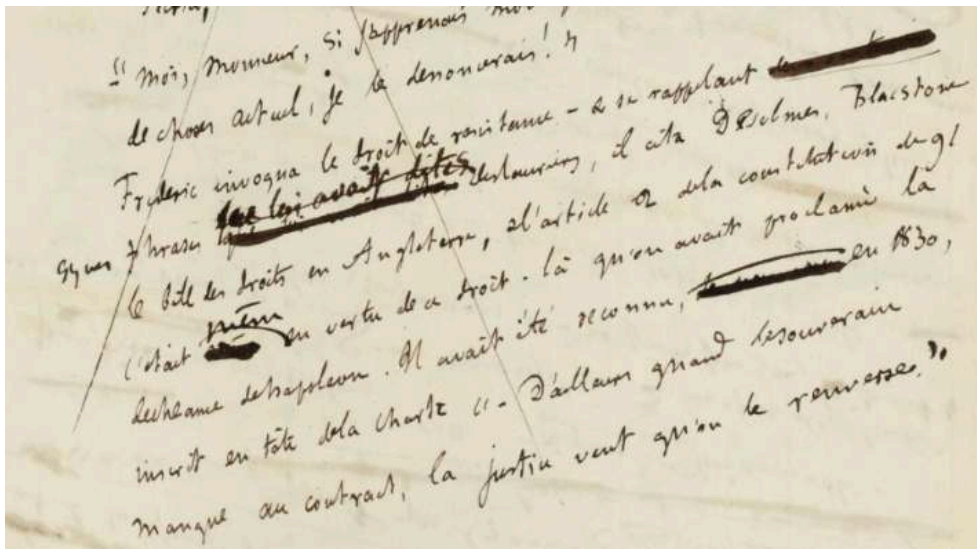 "Moi, Monsieur, si j'apprenais
de choses actuel, je le denoncerais! "
Frederic invoqua le droit de resistance – & se rappelant
qques phrases que lui avait dites Deslauriers, il cita Desolmes, Blacstone
le bill des droits en Angleterre, & l'article 2 dela constitution de 91
C'était même en vertu de ce droit-là qu'on avait proclamé la
decheance de Napoleon. Il avait été reconnu, en 1830,
inscrit en tête dela Charte "- D'ailleurs quand le souverain
manque au contract, la justice veut qu'on le renverse. "